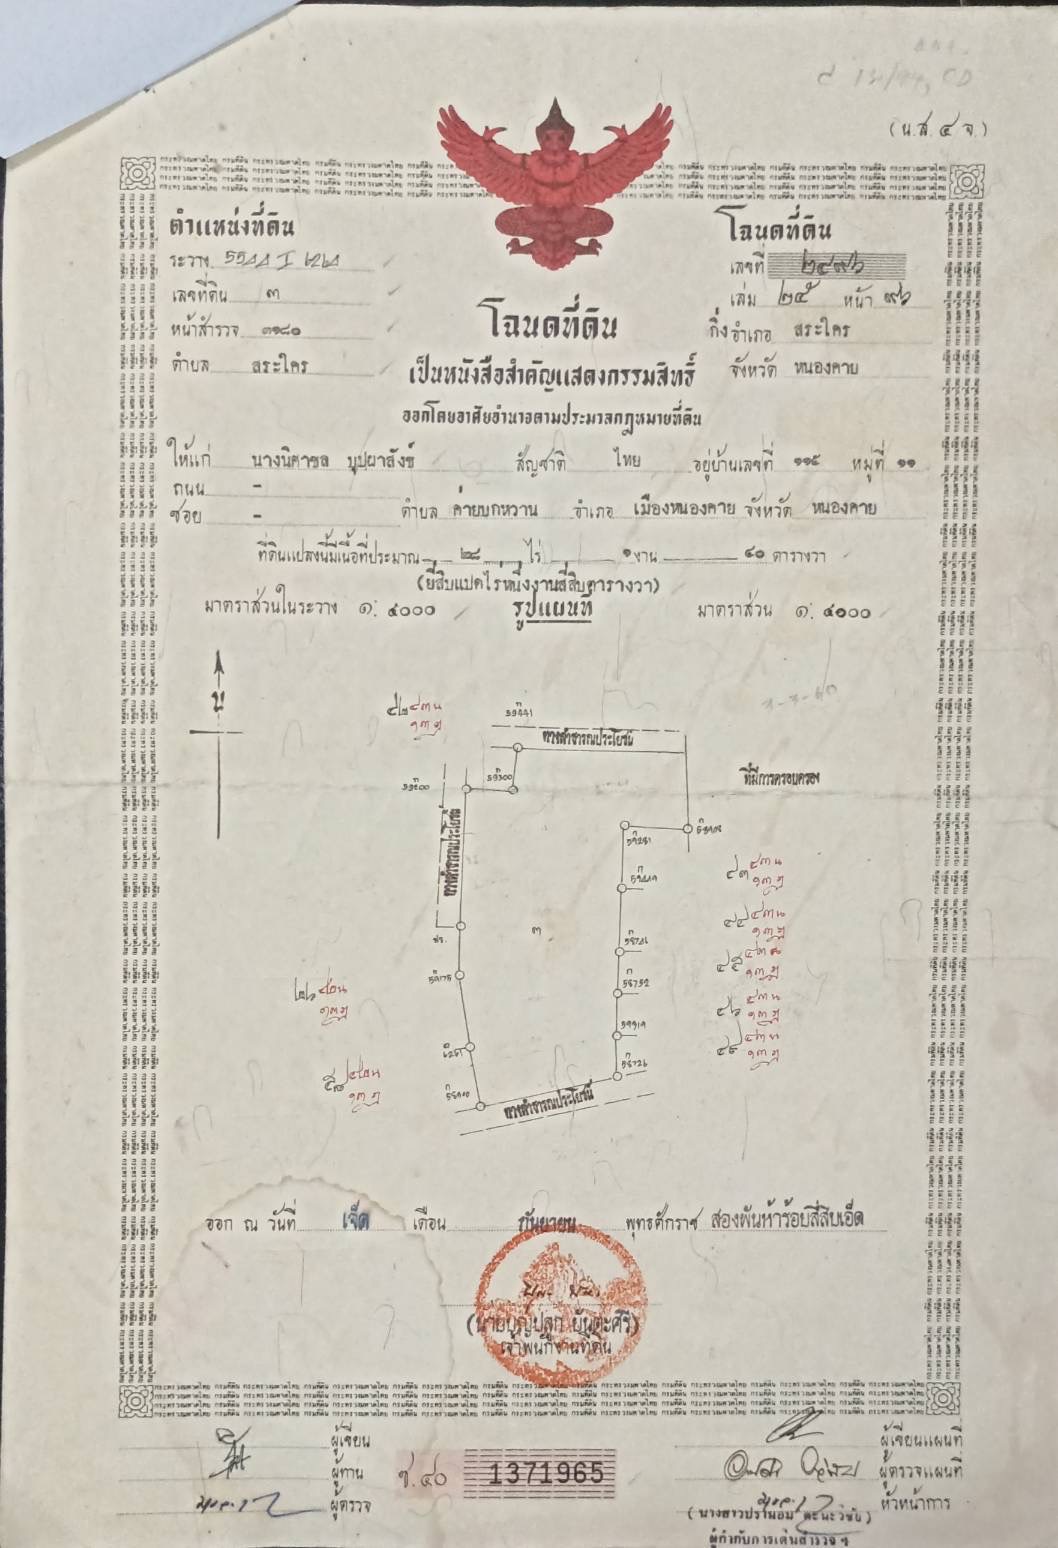 (น.ส. ๔ จ.)
ตำแหน่งที่ดิน
ระวาง 5544 I
เลขที่ดิน ๓
หน้าสำรวจ ๓๑๘๐
ตำบล สระใคร
โฉนดที่ดิน
เลขที่ ๒๔๙๖
เล่ม ๒๕ หน้า ๙๖
กิ่งอำเภอ สระใคร
จังหวัด หนองคาย
โฉนดที่ดิน
เป็นหนังสือสำคัญแสดงกรรมสิทธิ์
ออกโดยอาศัยอำนาจตามประมวลกฎหมายที่ดิน
ให้แก่ นางนิศาชล บุปผาสังข์ สัญชาติ ไทย อยู่บ้านเลขที่ ๑๑๕ หมู่ที่ ๑๑
ถนน -
ซอย - ตำบล ค่ายบกหวาน อำเภอ เมืองหนองคาย จังหวัด หนองคาย
ที่ดินแปลงนี้มีเนื้อที่ประมาณ ๒๘ ไร่ ๑ งาน ๔๐ ตารางวา
(ยี่สิบแปดไร่หนึ่งงานสี่สิบตารางวา)
มาตราส่วนในระวาง ๑: ๔๐๐๐ รูปแผนที่ มาตราส่วน ๑: ๔๐๐๐
น
ทางสาธารณประโยชน์
ที่มีการครอบครอง
ทางสาธารณประโยชน์
๓
ทางสาธารณประโยชน์
ออก ณ วันที่ เจ็ด เดือน กันยายน พุทธศักราช สองพันห้าร้อยสี่สิบเอ็ด
(นายบุญปลูก บันตะศรี)
เจ้าพนักงานที่ดิน
ผู้เขียน
ผู้ทาน
ผู้ตรวจ
ช.๔๐ 1371965
ผู้เขียนแผนที่
ผู้ตรวจแผนที่
หัวหน้าการ
ผู้กำกับการเดินสำรวจ ฯ